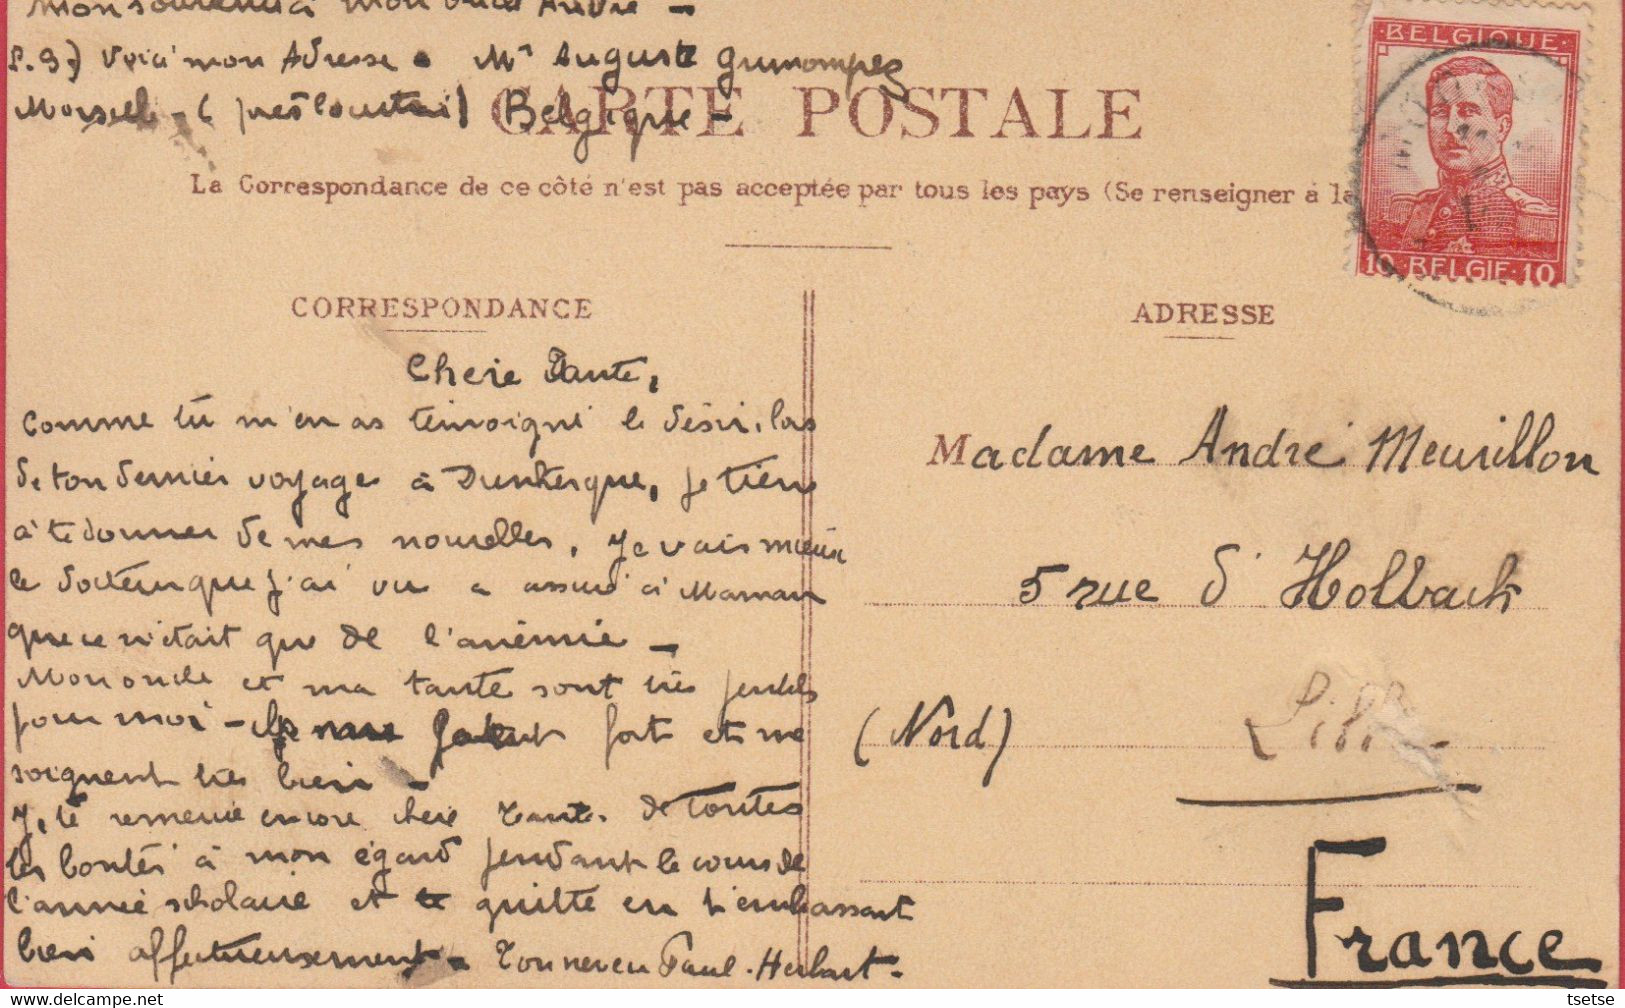 Mon souvenir à mon oncle André -
P.S.) Voici mon Adresse - Mr Auguste Grimonprez
(près Courtrai) Belgique -
CARTE POSTALE
La Correspondance de ce côté n'est pas acceptée par tous les pays (Se renseigner à la
BELGIQUE
10 BELGIE 10
CORRESPONDANCE
Chère Tante,
Comme tu m'en as témoigné le désir, lors
de ton dernier voyage à Dunkerque, je tiens
à te donner de mes nouvelles, je vais mieux
le docteur que j'ai vu a assuré à Maman
que ce n'était que de l'anémie -
Mon oncle et ma tante sont très gentils
pour moi - Ils me gâtent fort et me
soignent très bien -
Je te remercie encore chère tante de toutes
les bontés à mon égard pendant le cours de
l'année scholaire et te quitte en t'embrassant
bien affectueusement - Ton neveu Paul-Hubart -
ADRESSE
Madame André Meurillon
5 rue d'Holbach
(Nord) Lille
France
tsetse